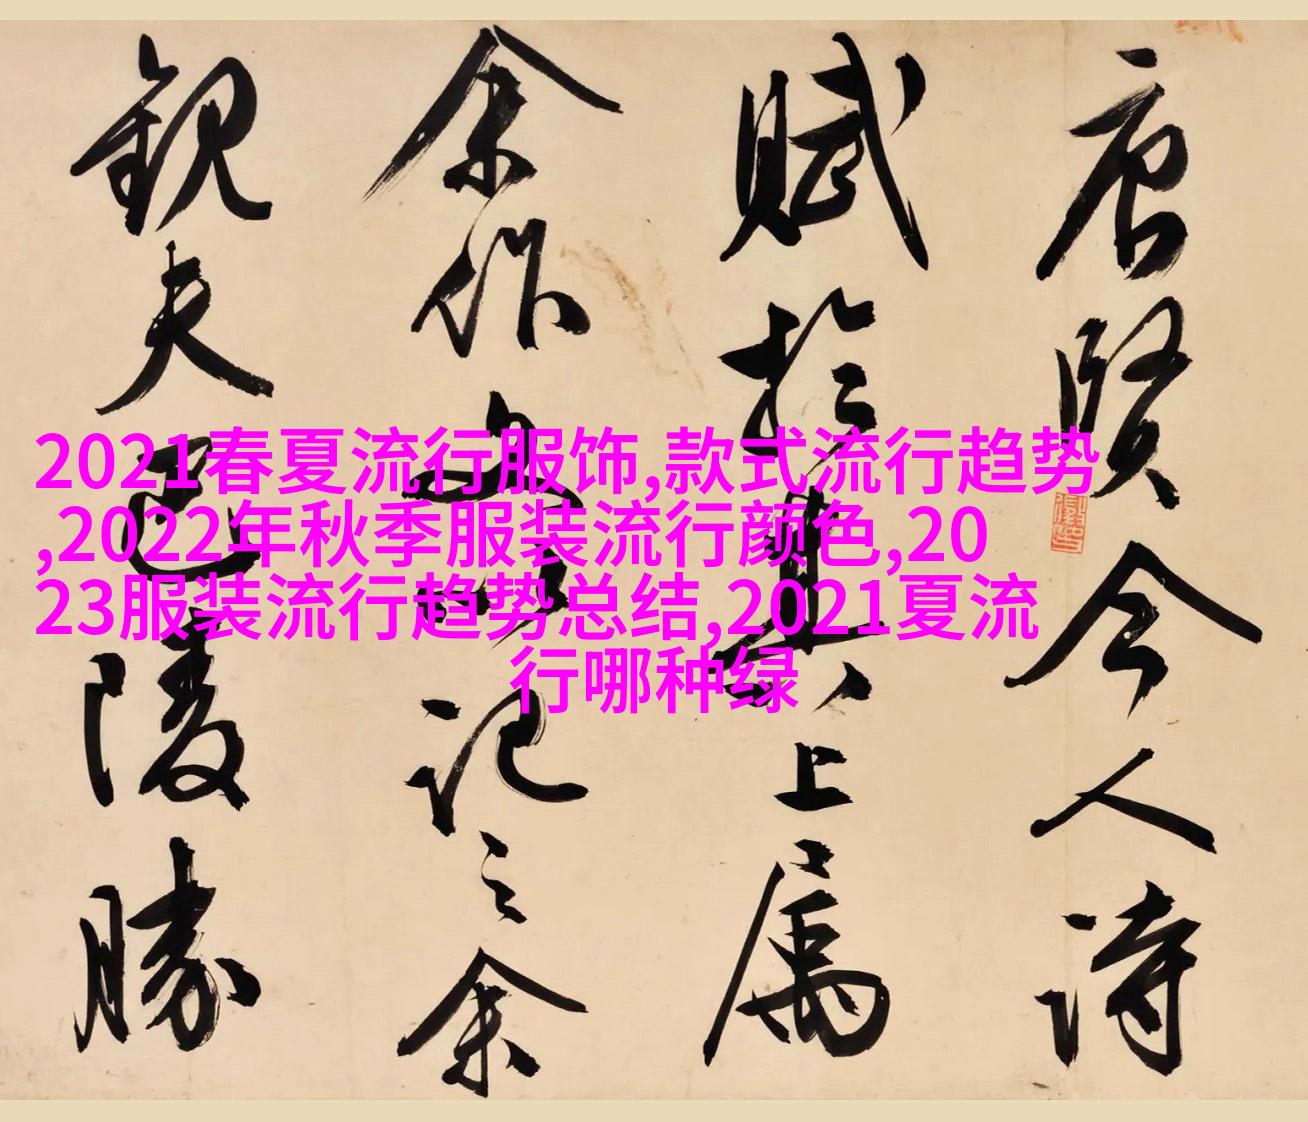 唐賢今人詩
賦扵其上屬
余作文以記之余
觀夫巴陵勝
2021春夏流行服饰,款式流行趋势
,2022年秋季服装流行颜色,20
23服装流行趋势总结,2021夏流
行哪种绿